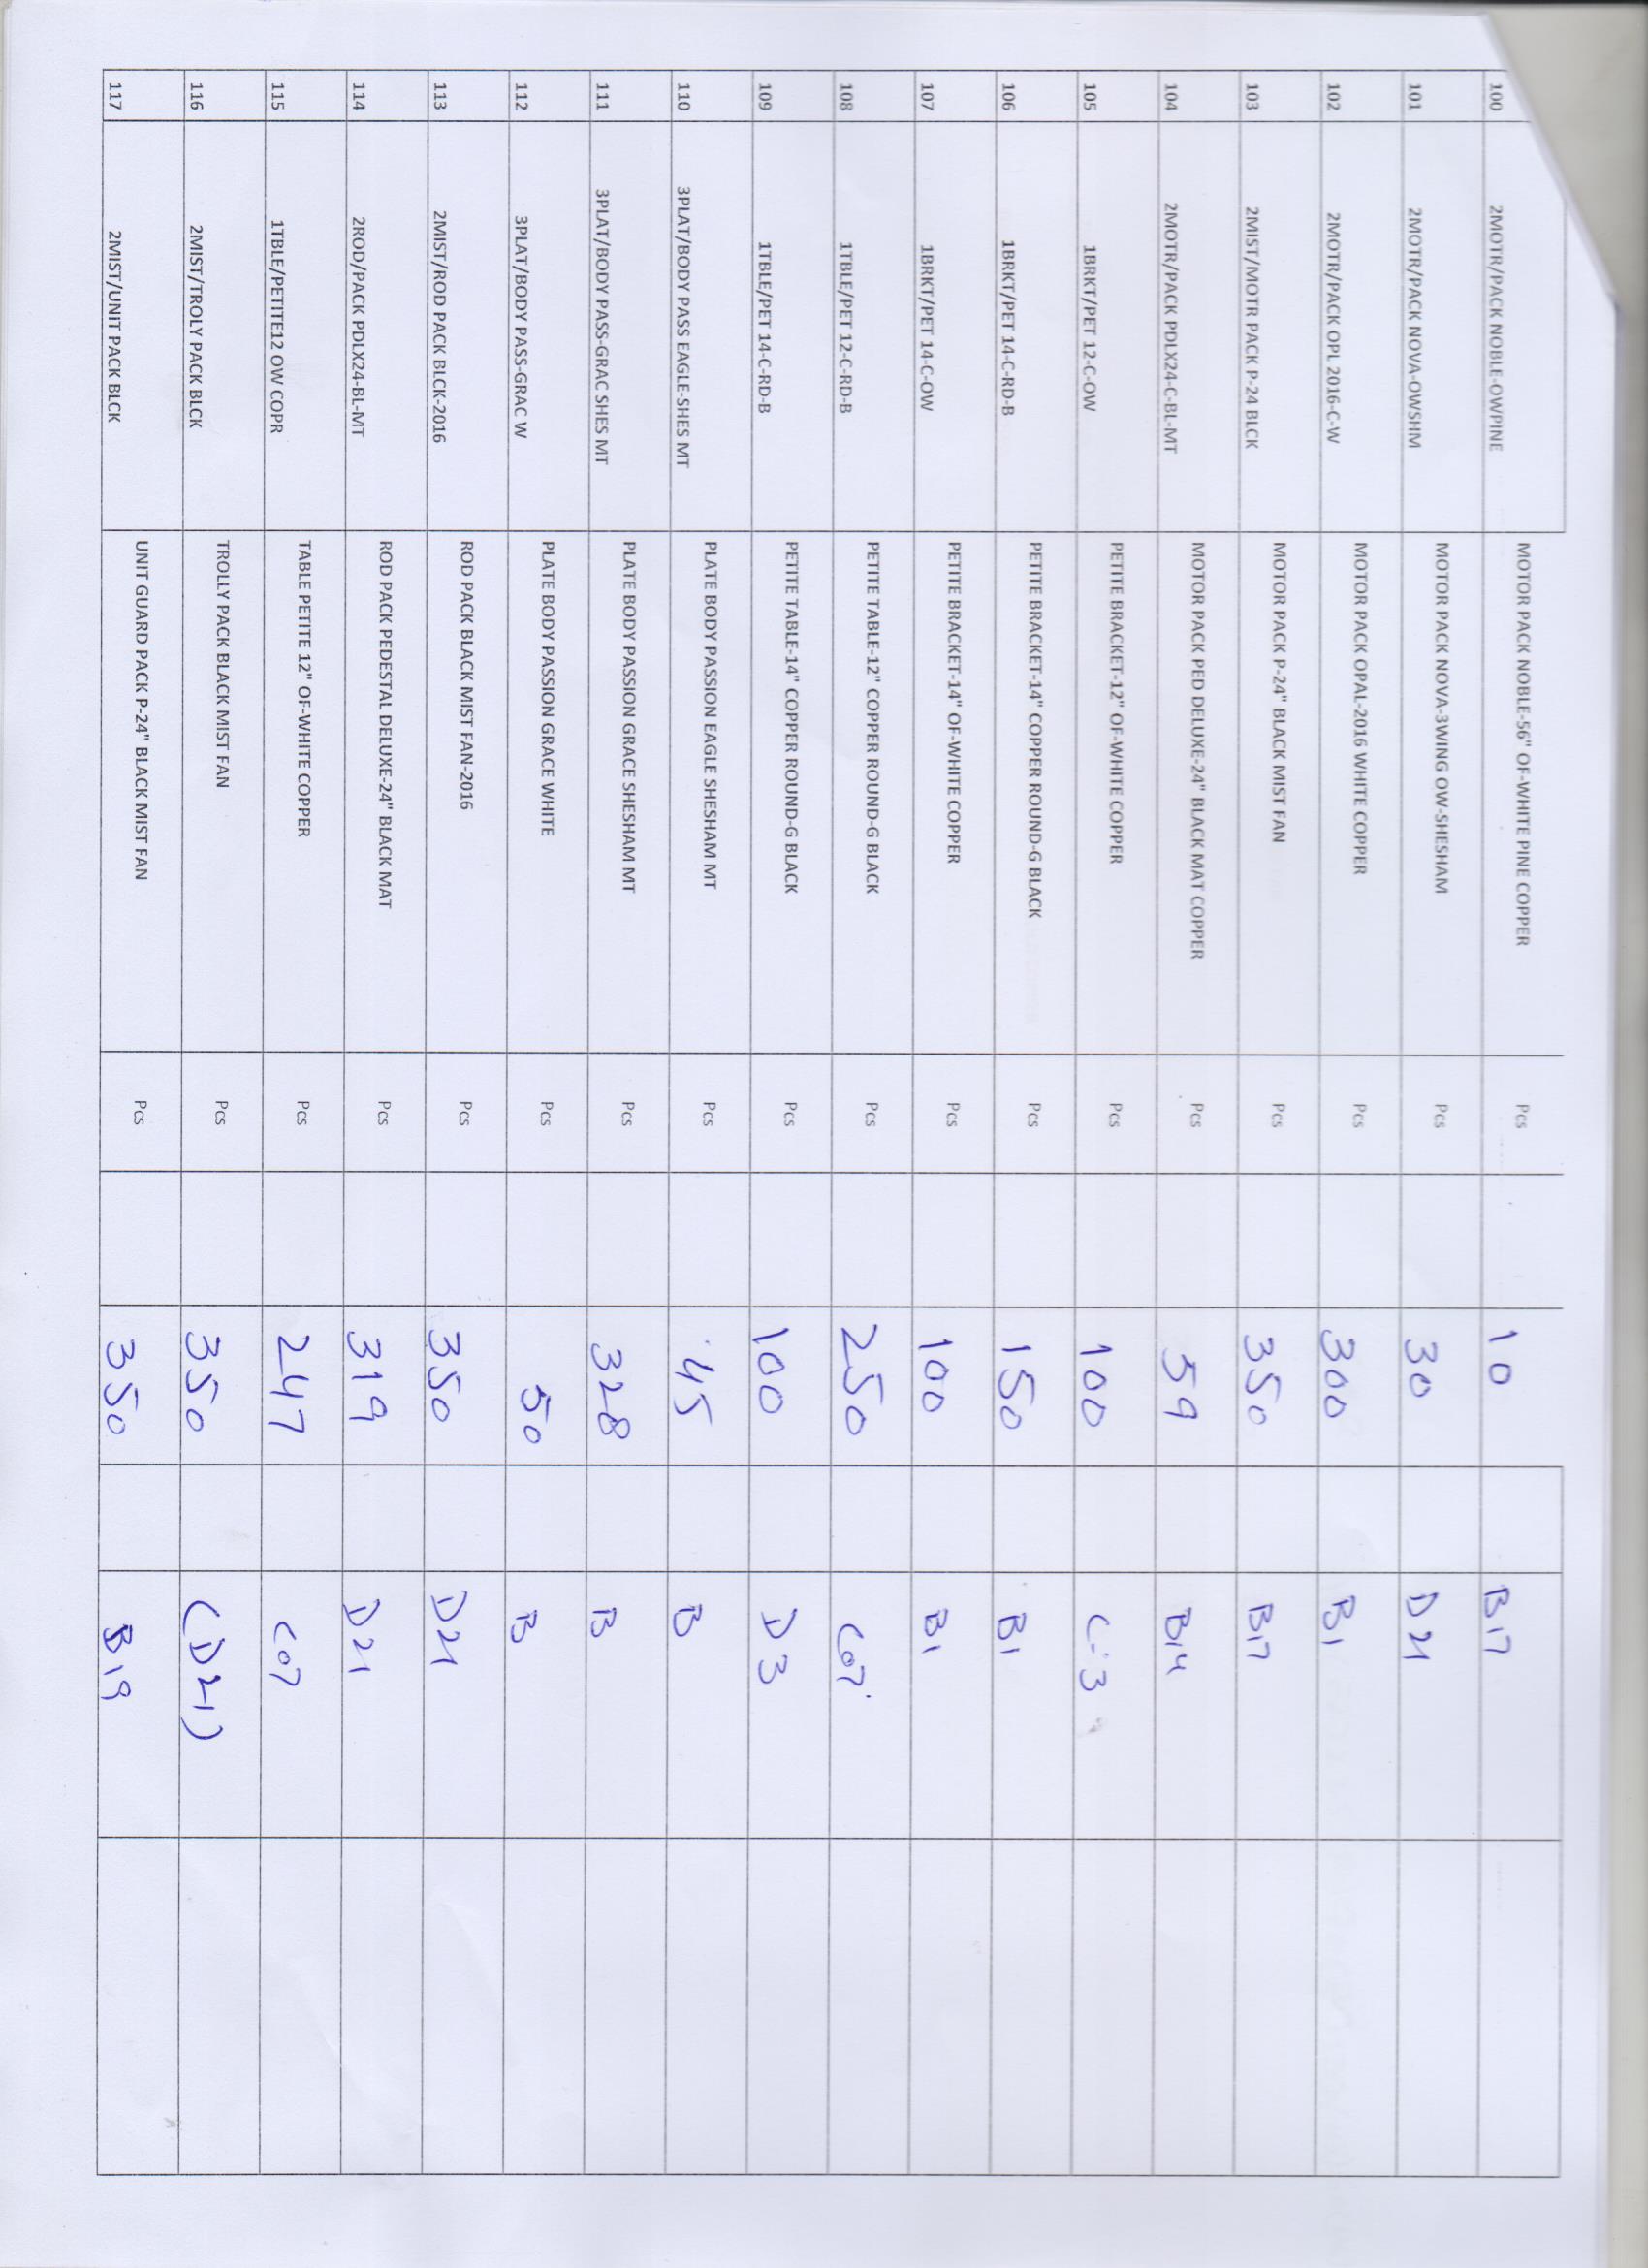 100 2MOTR/PACK NOBLE-OWPINE MOTOR PACK NOBLE-56" OF-WHITE PINE COPPER Pcs 10 B17
101 2MOTR/PACK NOVA-OWSHM MOTOR PACK NOVA-3WING OW-SHESHAM Pcs 30 D21
102 2MOTR/PACK OPL 2016-C-W MOTOR PACK OPAL-2016 WHITE COPPER Pcs 300 B1
103 2MIST/MOTR PACK P-24 BLCK MOTOR PACK P-24" BLACK MIST FAN Pcs 350 B17
104 2MOTR/PACK PDLX24-C-BL-MT MOTOR PACK PED DELUXE-24" BLACK MAT COPPER Pcs 59 B14
105 1BRKT/PET 12-C-OW PETITE BRACKET-12" OF-WHITE COPPER Pcs 100 C-3
106 1BRKT/PET 14-C-RD-B PETITE BRACKET-14" COPPER ROUND-G BLACK Pcs 150 B1
107 1BRKT/PET 14-C-OW PETITE BRACKET-14" OF-WHITE COPPER Pcs 100 B1
108 1TBLE/PET 12-C-RD-B PETITE TABLE-12" COPPER ROUND-G BLACK Pcs 250 C07
109 1TBLE/PET 14-C-RD-B PETITE TABLE-14" COPPER ROUND-G BLACK Pcs 100 D3
110 3PLAT/BODY PASS EAGLE-SHES MT PLATE BODY PASSION EAGLE SHESHAM MT Pcs 45 B
111 3PLAT/BODY PASS-GRAC SHES MT PLATE BODY PASSION GRACE SHESHAM MT Pcs 328 B
112 3PLAT/BODY PASS-GRAC W PLATE BODY PASSION GRACE WHITE Pcs 50 B
113 2MIST/ROD PACK BLCK-2016 ROD PACK BLACK MIST FAN-2016 Pcs 350 D21
114 2ROD/PACK PDLX24-BL-MT ROD PACK PEDESTAL DELUXE-24" BLACK MAT Pcs 319 D21
115 1TBLE/PETITE12 OW COPR TABLE PETITE 12" OF-WHITE COPPER Pcs 247 C07
116 2MIST/TROLY PACK BLCK TROLLY PACK BLACK MIST FAN Pcs 350 (D21)
117 2MIST/UNIT PACK BLCK UNIT GUARD PACK P-24" BLACK MIST FAN Pcs 350 B19